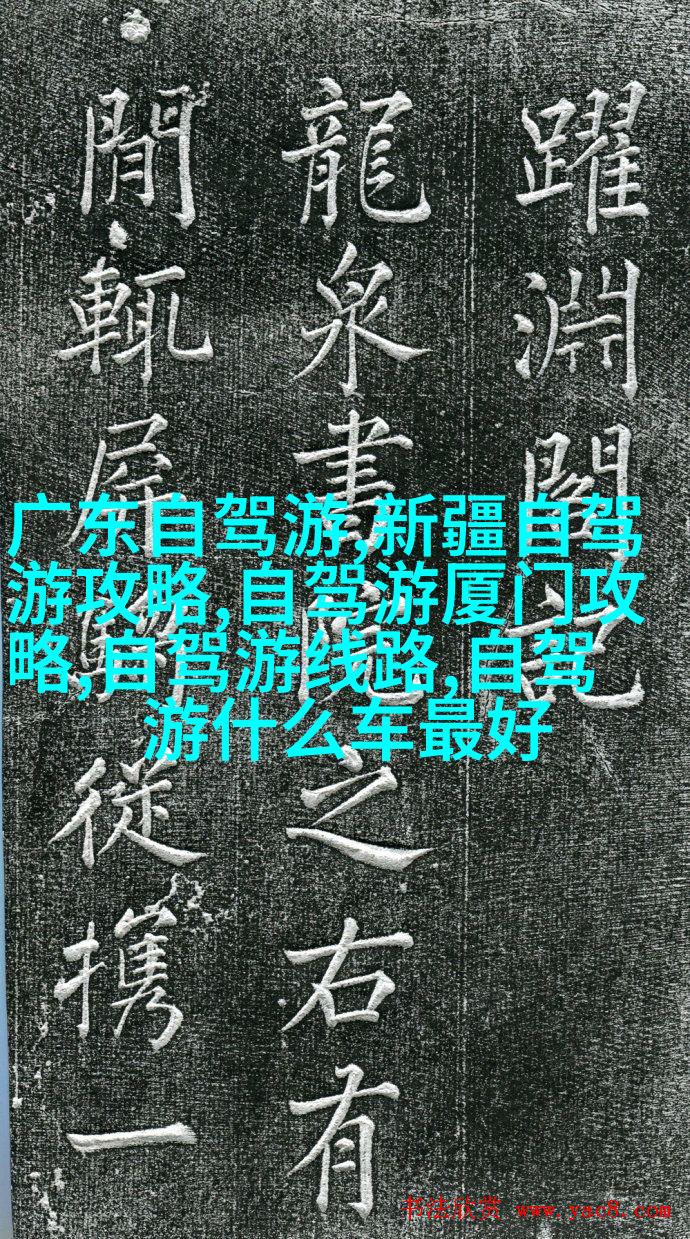 躍淵閣記
龍泉書院之右有
閒輒屏從攜一
广东自驾游,新疆自驾
游攻略,自驾游厦门攻
略,自驾游线路,自驾
游什么车最好
书法欣赏 www.yac8.com